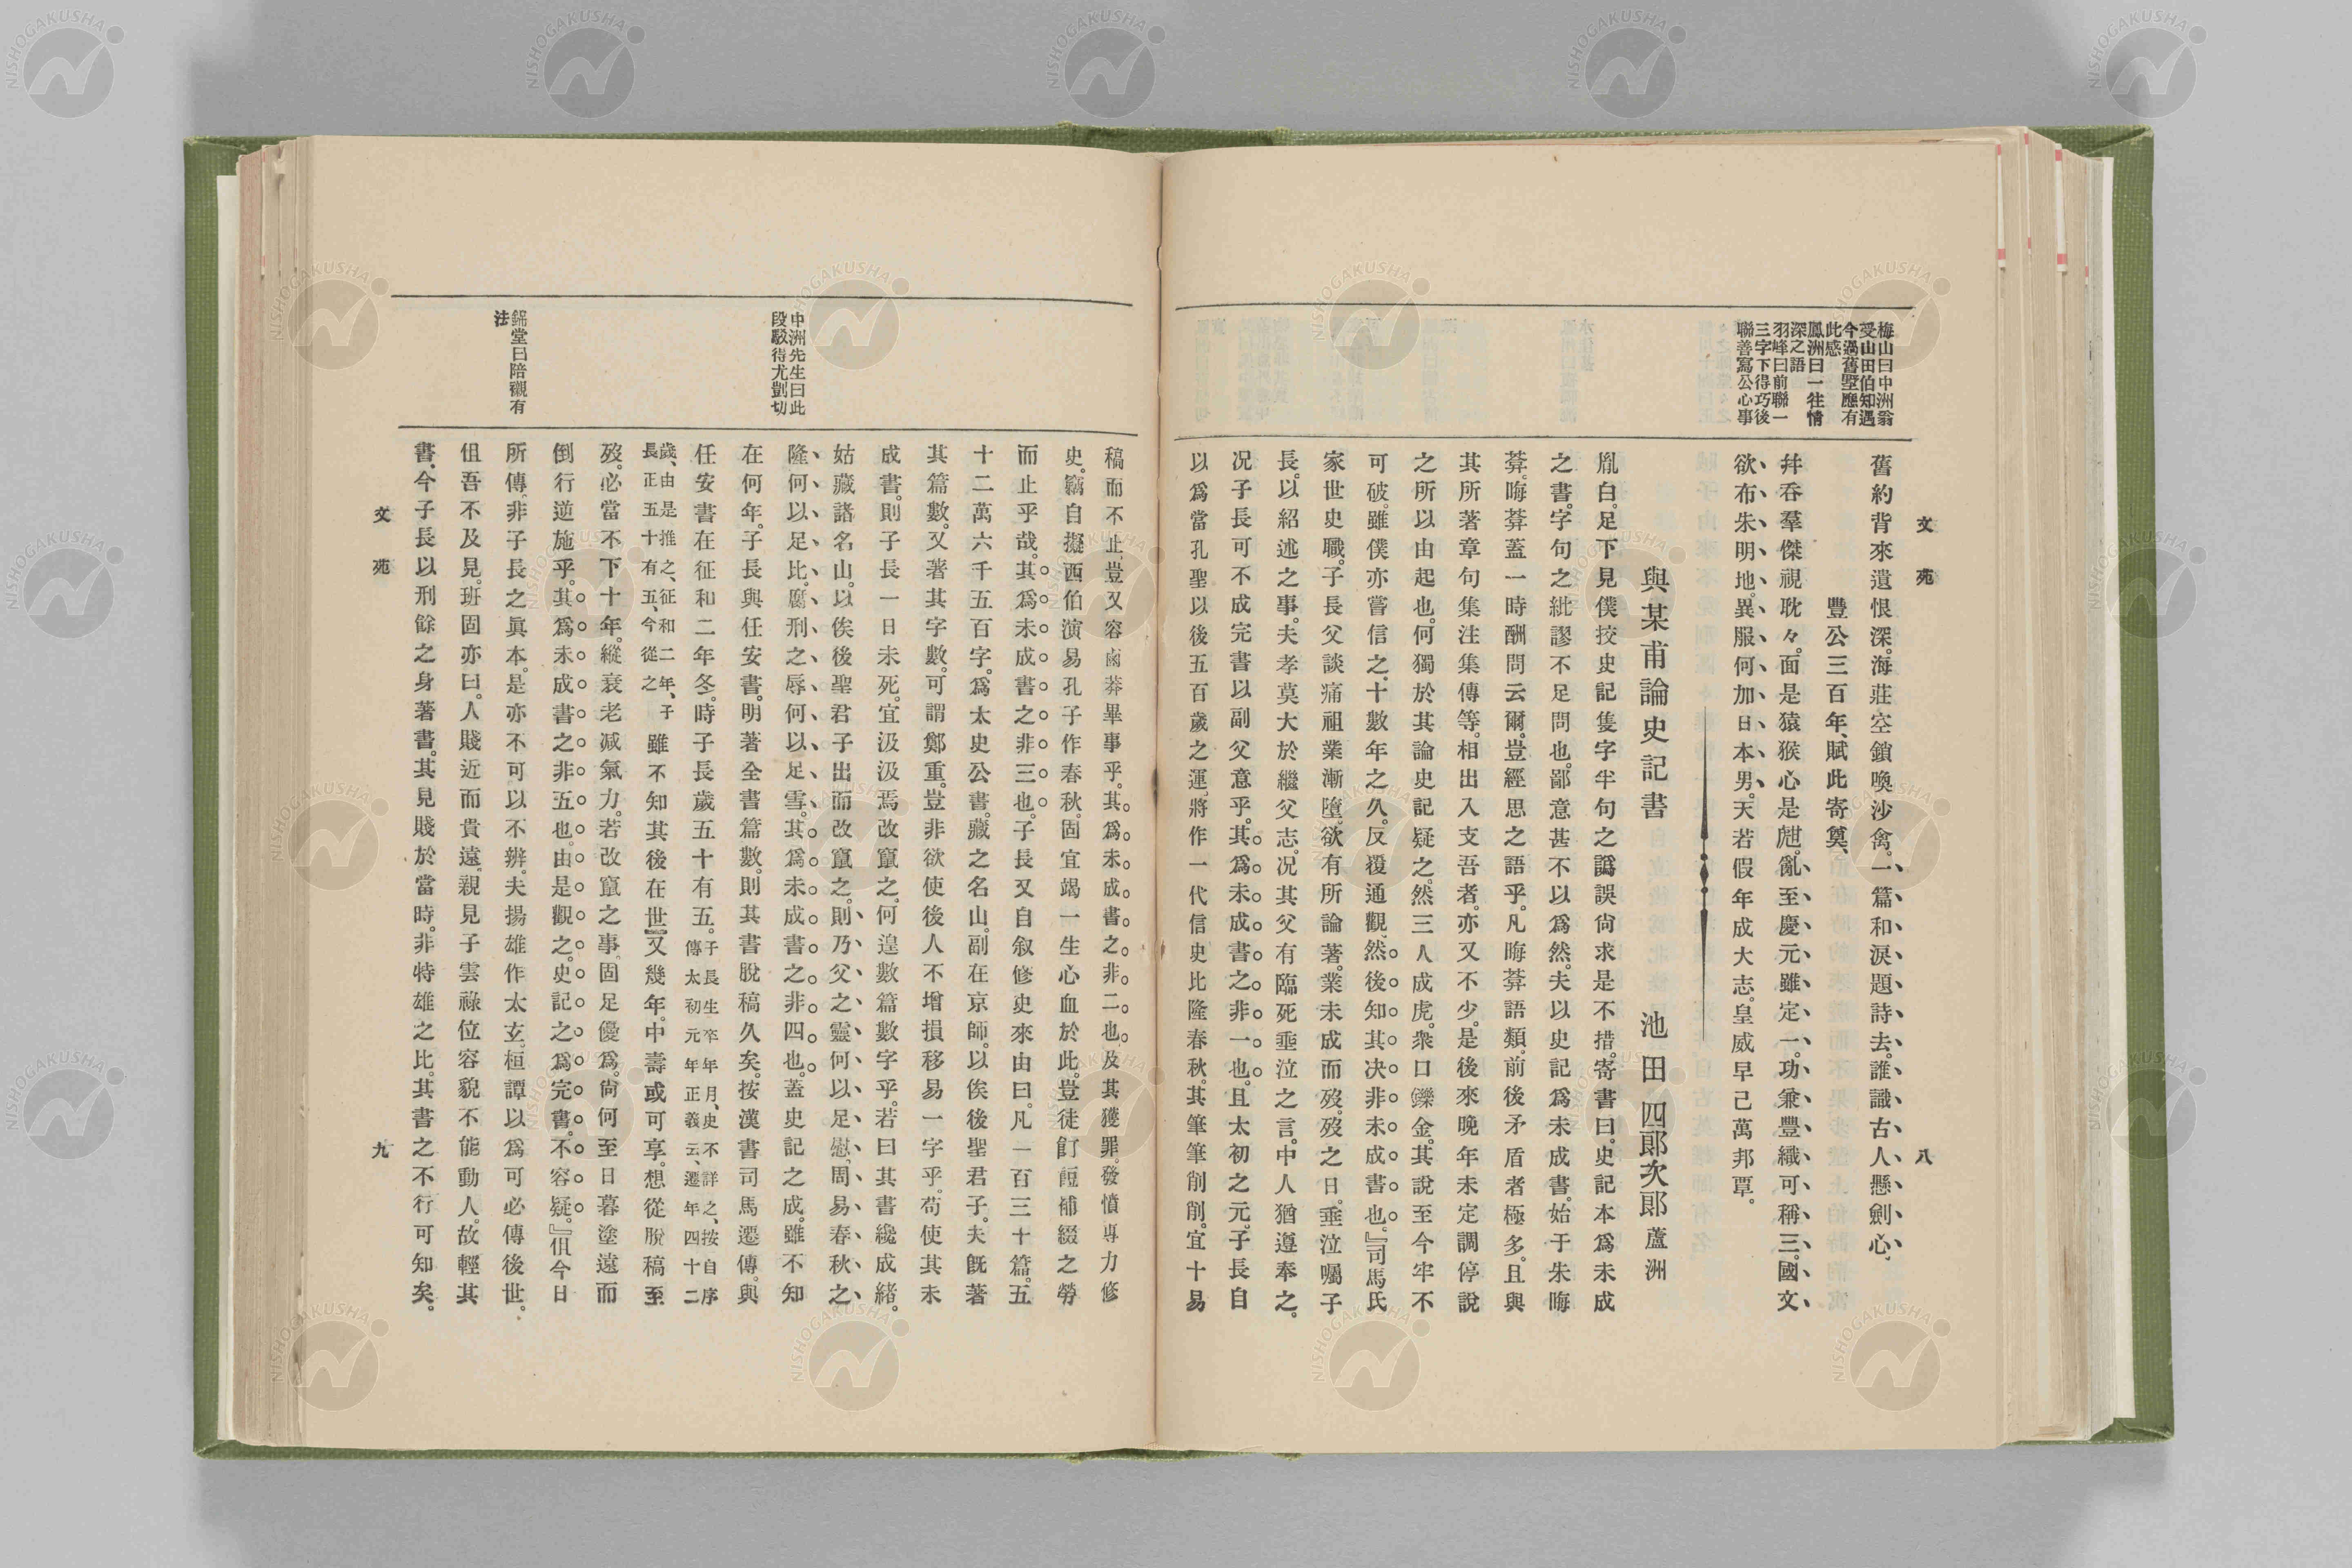 文苑
八
梅山曰中洲翁
受山田伯知遇
今過舊墅應有
此感
鳳洲曰一往情
深之語
羽峰曰前聯一
三字下得巧後
聯善寫公心事
舊約背來遺恨深。海莊空鎖喚沙禽。一篇和淚題詩去。誰識古人懸劍心、
豐公三百年、賦此寄奠、
幷吞羣傑視耽々。面是猿猴心是虺。亂至慶元雖定一。功兼豐織可稱三。國文
欲布朱明地。異服何加日本男。天若假年成大志。皇威早已萬邦覃。
與某甫論史記書
池田四郎次郎 蘆洲
胤白。足下見僕挍史記隻字半句之譌誤尙求是不措。寄書曰。史記本爲未成
之書。字句之紕謬不足問也。鄙意甚不以爲然。夫以史記爲未成書。始于朱晦
菴。晦菴蓋一時酬問云爾。豈經思之語乎。凡晦菴語類。前後矛盾者極多。且與
其所著章句集注集傳等。相出入支吾者。亦又不少。是後來晚年未定調停說
之所以由起也。何獨於其論史記疑之。然三人成虎。衆口鑠金。其說至今牢不
可破。雖僕亦嘗信之。十數年之久。反覆通觀、然後知其決非未成書也。』司馬氏
家世史職。子長父談痛祖業漸墮。欲有所論著。業未成而歿。歿之日。垂泣囑子
長。以紹述之事。夫孝莫大於繼父志。况其父有臨死垂泣之言。中人猶遵奉之。
况子長可不成完書以副父意乎。其爲未成書之非一也。且太初之元。子長自
以爲當孔聖以後五百歲之運、將作一代信史比隆春秋。其筆筆削削。宜十易
中洲先生曰此
段駁得尤剴切
錦堂曰陪襯有
注
稿而不止、豈又容鹵莽畢事乎。其爲未成書之非二也。及其獲罪。發憤專力修
史。竊自擬西伯演易孔子作春秋。固宜竭一生心血於此。豈徒飣餖補綴之勞
而止乎哉。其爲未成書之非三也。子長又自叙修史來由曰。凡一百三十篇。五
十二萬六千五百字。爲太史公書。藏之名山。副在京師。以俟後聖君子。夫既著
其篇數。又著其字數。可謂鄭重。豈非欲使後人不增損移易一字乎。苟使其未
成書。則子長一日未死。宜汲汲焉改竄之。何遑數篇數字乎。若曰其書纔成緖。
姑藏諸名山。以俟後聖君子出而改竄之。則乃父之靈何以足慰、周易春秋之
隆、何以足比。腐刑之辱何以足雪。其爲未成書之非四也。蓋史記之成。雖不知
在何年。子長與任安書。明著全書篇數。則其書脫稿久矣。按漢書司馬遷傳。與
任安書在征和二年冬。時子長歲五十有五。子長生卒年月、史不詳之、按自序
傳太初元年正義云、遷年四十二
歲、由是推之、征和二年、子
長正五十有五、今從之
雖不知其後在世又幾年。中壽或可享。想從脫稿至
歿。必當不下十年。縱衰老减氣力。若改竄之事。固足優爲。尙何至日暮塗遠而
倒行逆施乎。其爲未成書之非五也。由是觀之。史記之爲完書。不容疑。』伹今日
所傳、非子長之眞本。是亦不可以不辨。夫揚雄作太玄。桓譚以爲可必傳後世。
伹吾不及見。班固亦曰。人賤近而貴遠、親見子雲祿位容貌不能動人。故輕其
書、今子長以刑餘之身著書。其見賤於當時。非特雄之比。其書之不行可知矣。
文苑
九